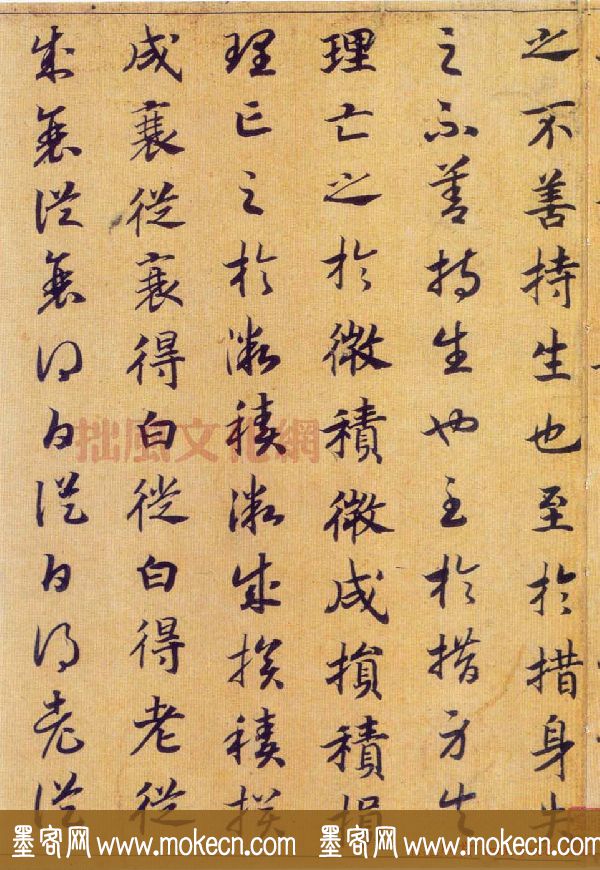 之不善持生也至於措身失
之不善持生也至於措身失
理亡之於微積微成損積損
理亡之於微積微成損積損
成衰從衰得白從白得老從
成衰從衰得白從白得老從
拙風文化網
墨客网 www.mokecn.com 墨客网 www.mokecn.com